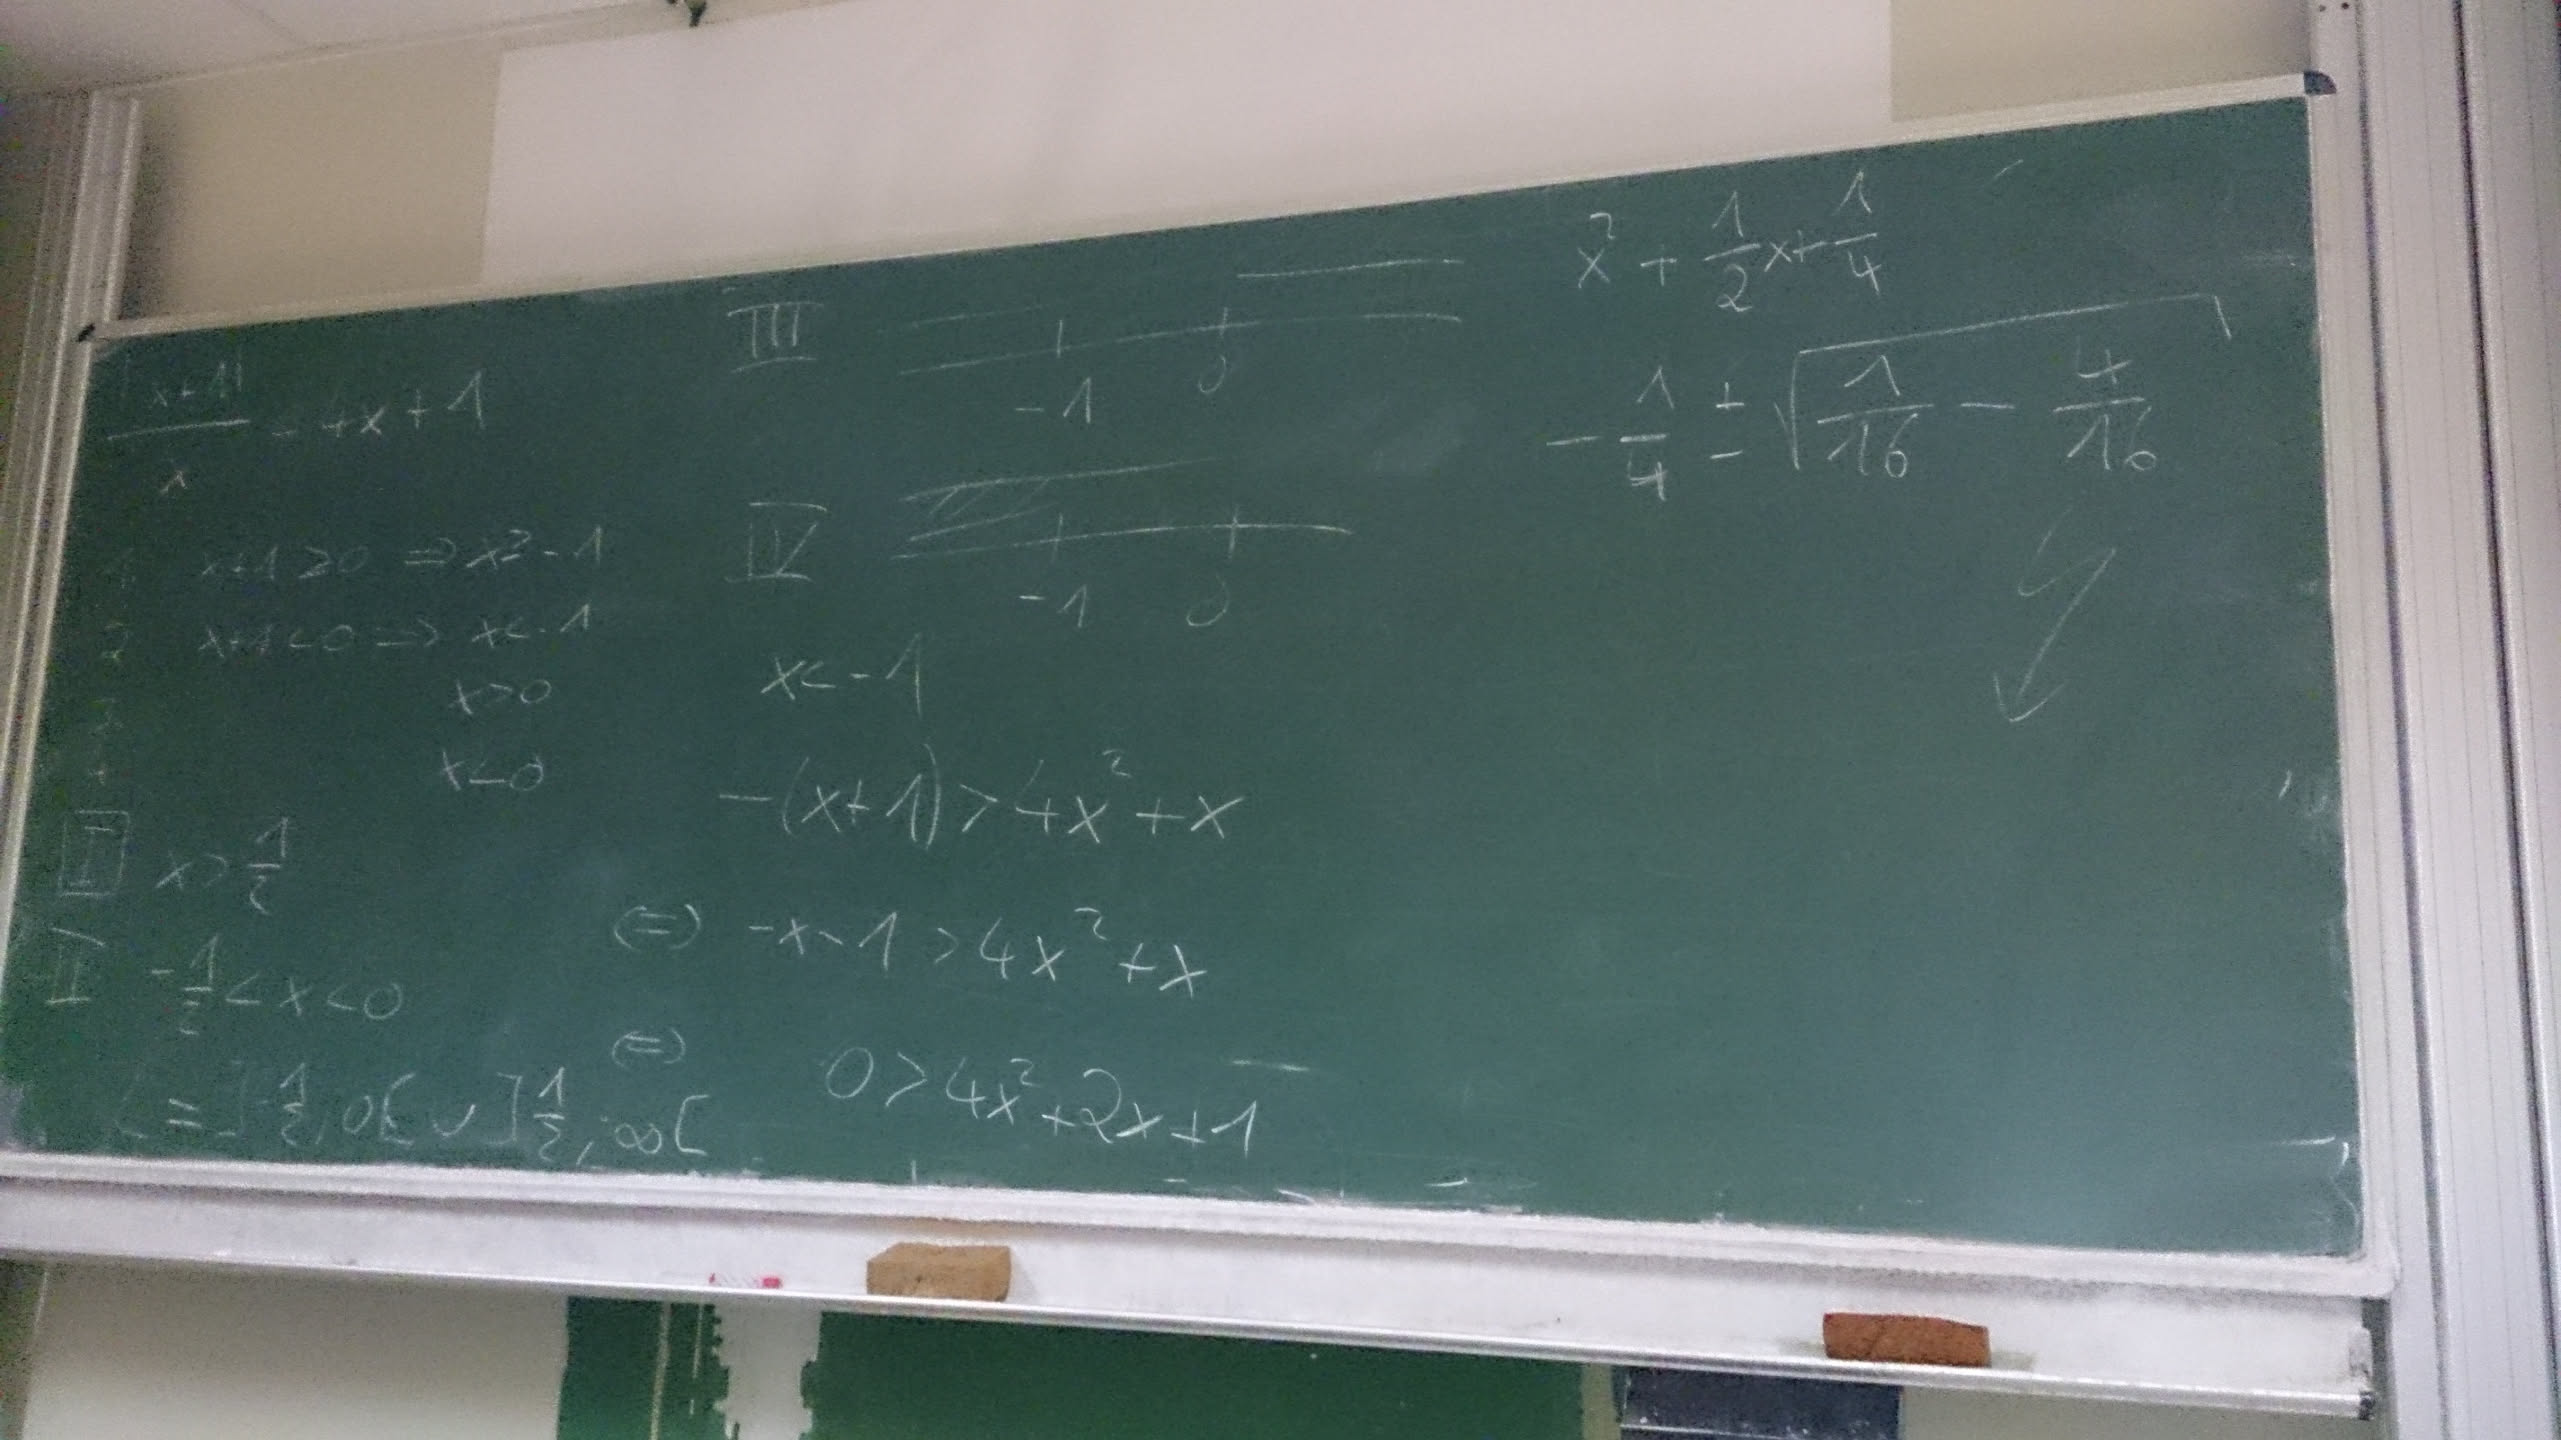 |x+1|
x
= 4x + 1
1. x+1 ≥ 0 ⇒ x ≥ -1
2 x+1 < 0 ⇒ x < -1
3 x > 0
4 x < 0
I x > 1/2
II -1/2 < x < 0
L = ]-1/2, 0[ ∪ ]1/2; ∞[
III
-1 0
IV
-1 0
x < -1
-(x+1) > 4x² + x
(=) -x-1 > 4x² + x
(=) 0 > 4x² + 2x + 1
x² + 1/2 x + 1/4
- 1/4 ± √(1/16 - 4/16)